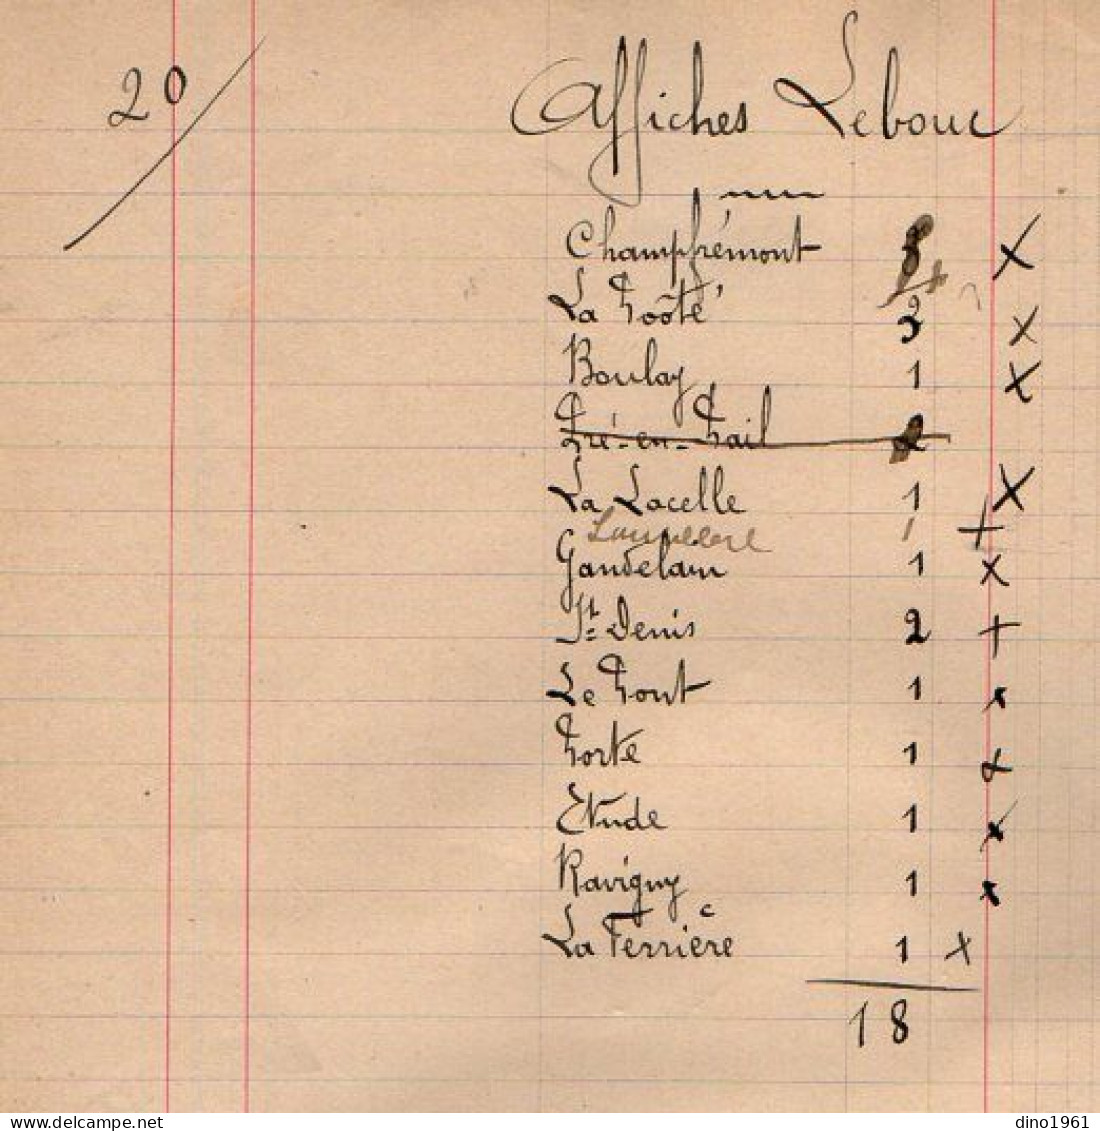 20
Affiches Lebouc
Champfrémont
La Poôté 3
Boulay 1
Pré-en-Pail 2
La Lacelle 1
1
Gandelain 1
St Denis 2
Le Pont 1
Porte 1
Etude 1
Ravigny 1
La Ferrière 1
18
dino1961